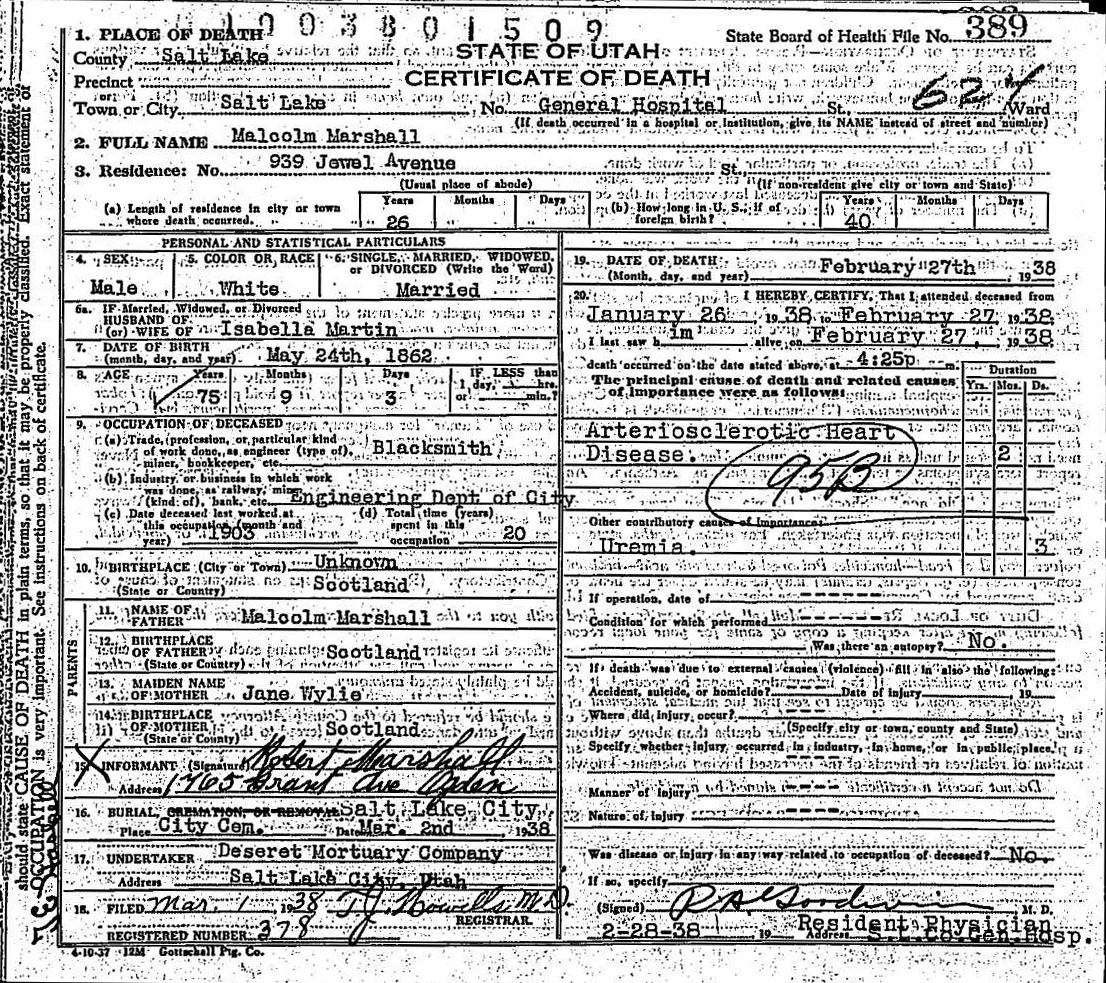 1003801509
1. PLACE OF DEATH
State Board of Health File No. 389
County Salt Lake
STATE OF UTAH
Precinct
CERTIFICATE OF DEATH
or
Town or City Salt Lake No. General Hospital St. 624 Ward
(If death occurred in a hospital or institution, give its NAME instead of street and number)
2. FULL NAME Malcolm Marshall
3. Residence: No. 939 Jewel Avenue St.
(Usual place of abode) (If non-resident give city or town and State)
(a) Length of residence in city or town where death occurred. Years 26 Months Days
(b) How long in U. S., if of foreign birth? Years 40 Months Days
PERSONAL AND STATISTICAL PARTICULARS
4. SEX Male
5. COLOR OR RACE White
6. SINGLE, MARRIED, WIDOWED, or DIVORCED (Write the Word) Married
6a. IF Married, Widowed, or Divorced
HUSBAND OF
(or) WIFE OF Isabella Martin
7. DATE OF BIRTH
(month, day, and year) May 24th, 1862
8. AGE Years 75 Months 9 Days 3 IF LESS than 1 day, hrs. or min.?
9. OCCUPATION OF DECEASED
(a) Trade, profession, or particular kind of work done, as engineer (type of), miner, bookkeeper, etc. Blacksmith
(b) Industry or business in which work was done, as railway, mine (kind of), bank, etc. Engineering Dept of City
(c) Date deceased last worked at this occupation (month and year) 1903
(d) Total time (years) spent in this occupation 20
10. BIRTHPLACE (City or Town) Unknown
(State or Country) Scotland
PARENTS
11. NAME OF FATHER Malcolm Marshall
12. BIRTHPLACE OF FATHER (State or Country) Scotland
13. MAIDEN NAME OF MOTHER Jane Wylie
14. BIRTHPLACE OF MOTHER (State or County) Scotland
15. INFORMANT (Signature) Robert Marshall
Address 1765 Grant Ave Ogden
16. BURIAL, CREMATION, OR REMOVAL Salt Lake City,
Place City Cem. Date Mar. 2nd 1938
17. UNDERTAKER Deseret Mortuary Company
Address Salt Lake City, Utah
18. FILED Mar. 1 1938 T J Howells M.D.
REGISTRAR.
REGISTERED NUMBER 378
4-10-37 12M Gottschall Ptg. Co.
19. DATE OF DEATH
(Month, day, and year) February 27th 1938
20. I HEREBY CERTIFY, That I attended deceased from
January 26 1938 to February 27 1938
I last saw him alive on February 27, 1938
death occurred on the date stated above, at 4:25p m.
The principal cause of death and related causes of importance were as follows:
Duration
Yrs. Mos. Ds.
Arteriosclerotic Heart
Disease. 2
95B
Other contributory causes of importance:
Uremia. 3
If operation, date of ------
Condition for which performed ------
Was there an autopsy? No.
If death was due to external causes (violence) fill in also the following:
Accident, suicide, or homicide? --- Date of injury 19
Where did injury occur? ---
(Specify city or town, county and State)
Specify whether injury occurred in industry, in home, or in public place.
Manner of injury ---
Nature of injury ---
Was disease or injury in any way related to occupation of deceased? No.
If so, specify
(Signed) R A Goodwin M. D.
Resident Physician
2-28-38 19 Address S.L.Co.Gen.Hosp.
should state CAUSE OF DEATH in plain terms, so that it may be properly classified. Exact statement of
OCCUPATION is very important. See instructions on back of certificate.